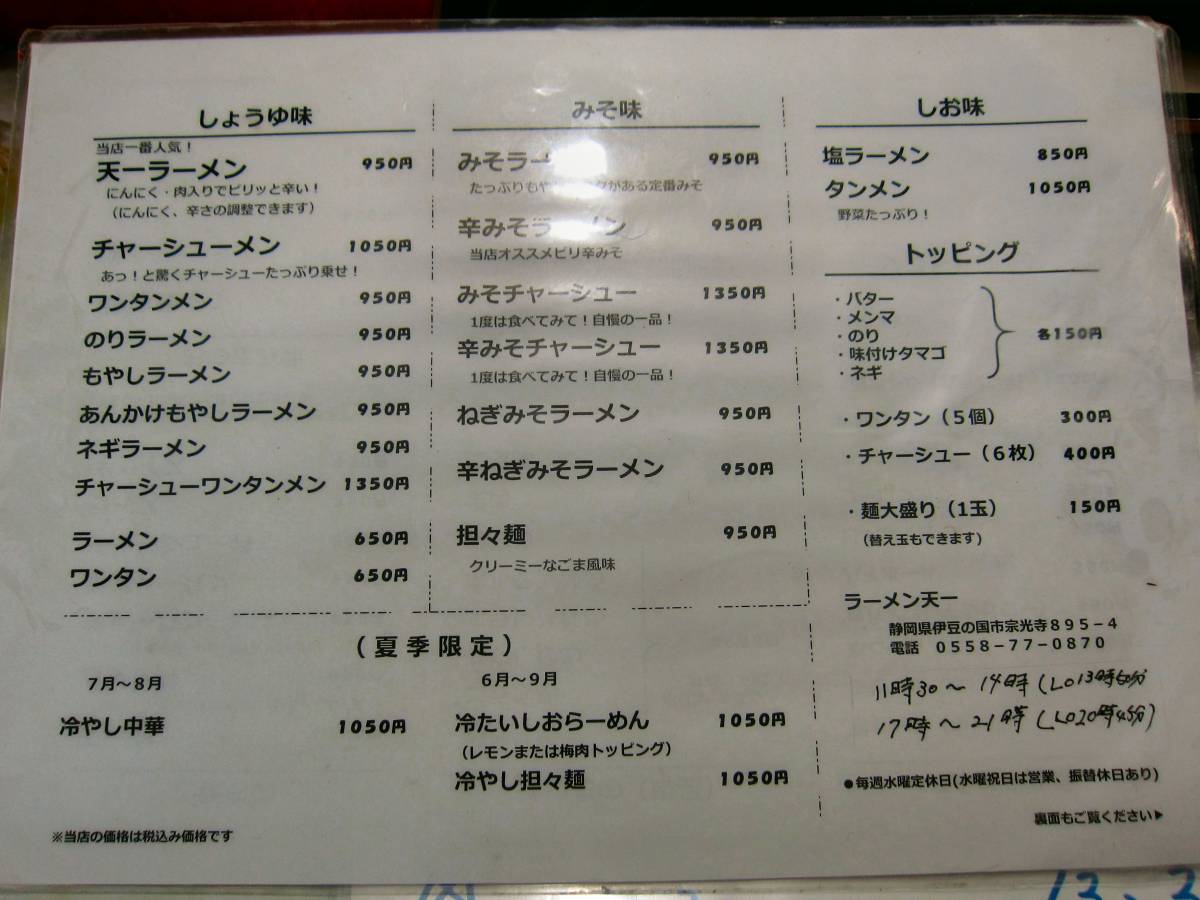 しょうゆ味
当店一番人気！
天一ラーメン 950円
にんにく・肉入りでピリッと辛い！
（にんにく、辛さの調整できます）
チャーシューメン 1050円
あっ！と驚くチャーシューたっぷり乗せ！
ワンタンメン 950円
のりラーメン 950円
もやしラーメン 950円
あんかけもやしラーメン 950円
ネギラーメン 950円
チャーシューワンタンメン 1350円
ラーメン 650円
ワンタン 650円
みそ味
みそラー 950円
たっぷりもや がある定番みそ
辛みそラーメン 950円
当店オススメピリ辛みそ
みそチャーシュー 1350円
1度は食べてみて！自慢の一品！
辛みそチャーシュー 1350円
1度は食べてみて！自慢の一品！
ねぎみそラーメン 950円
辛ねぎみそラーメン 950円
担々麺 950円
クリーミーなごま風味
しお味
塩ラーメン 850円
タンメン 1050円
野菜たっぷり！
トッピング
・バター
・メンマ
・のり
・味付けタマゴ
・ネギ
各150円
・ワンタン（５個） 300円
・チャーシュー（６枚） 400円
・麺大盛り（1玉） 150円
（替え玉もできます）
ラーメン天一
静岡県伊豆の国市宗光寺８９５－４
電話 ０５５８－７７－０８７０
11時30～14時（LO13時 分
17時～21時（LO20時45分）
●毎週水曜定休日(水曜祝日は営業、振替休日あり)
裏面もご覧ください▶
（夏季限定）
７月～８月
冷やし中華 1050円
６月～９月
冷たいしおらーめん 1050円
（レモンまたは梅肉トッピング）
冷やし担々麺 1050円
※当店の価格は税込み価格です